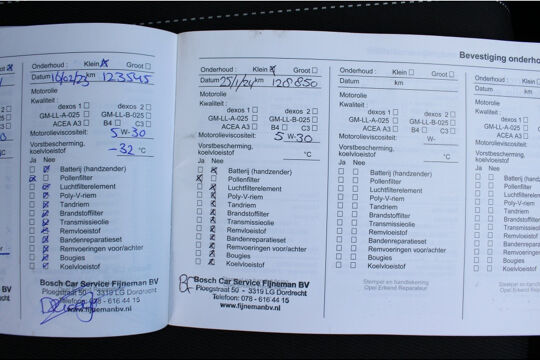 Bevestiging onderho
Onderhoud : Klein Groot
Datum 16/02/23 km 123545
Motorolie
Kwaliteit :
dexos 1 dexos 2
GM-LL-A-025 GM-LL-B-025
ACEA A3 B4 C3
Motorolieviscositeit: 5 W-30
Vorstbescherming,
koelvloeistof -32 °C
Ja Nee
Batterij (handzender)
Pollenfilter
Luchtfilterelement
Poly-V-riem
Tandriem
Brandstoffilter
Transmissieolie
Remvloeistof
Bandenreparatieset
Remvoeringen voor/achter
Bougies
Koelvloeistof
Bosch Car Service Fijneman BV
Ploegstraat 50 - 3319 LG Dordrecht
Telefoon: 078 - 616 44 15
www.fijnemanbv.nl
Onderhoud : Klein Groot
Datum 25/1/24 km 128850
Motorolie
Kwaliteit :
dexos 1 dexos 2
GM-LL-A-025 GM-LL-B-025
ACEA A3 B4 C3
Motorolieviscositeit: 5 W-30
Vorstbescherming,
koelvloeistof °C
Ja Nee
Batterij (handzender)
Pollenfilter
Luchtfilterelement
Poly-V-riem
Tandriem
Brandstoffilter
Transmissieolie
Remvloeistof
Bandenreparatieset
Remvoeringen voor/achter
Bougies
Koelvloeistof
Bosch Car Service Fijneman BV
Ploegstraat 50 - 3319 LG Dordrecht
Telefoon: 078 - 616 44 15
www.fijnemanbv.nl
Onderhoud : Klein Groot
Datum km
Motorolie
Kwaliteit :
dexos 1 dexos 2
GM-LL-A-025 GM-LL-B-025
ACEA A3 B4 C3
Motorolieviscositeit: W-
Vorstbescherming,
koelvloeistof °C
Ja Nee
Batterij (handzender)
Pollenfilter
Luchtfilterelement
Poly-V-riem
Tandriem
Brandstoffilter
Transmissieolie
Remvloeistof
Bandenreparatieset
Remvoeringen voor/achter
Bougies
Koelvloeistof
Stempel en handtekening
Opel Erkend Reparateur
Onderhoud : Kle
Datum
Motorolie
Kwaliteit :
dexos 1
GM-LL-A-025
ACEA A3
Motorolieviscositeit:
Vorstbescherming,
koelvloeistof
Ja Nee
Batterij (hand
Pollenfilter
Luchtfilterele
Poly-V-riem
Tandriem
Brandstoffilte
Transmissie
Remvloeisto
Bandenrepa
Remvoering
Bougies
Koelvloeisto
Stempel en
Opel Erke